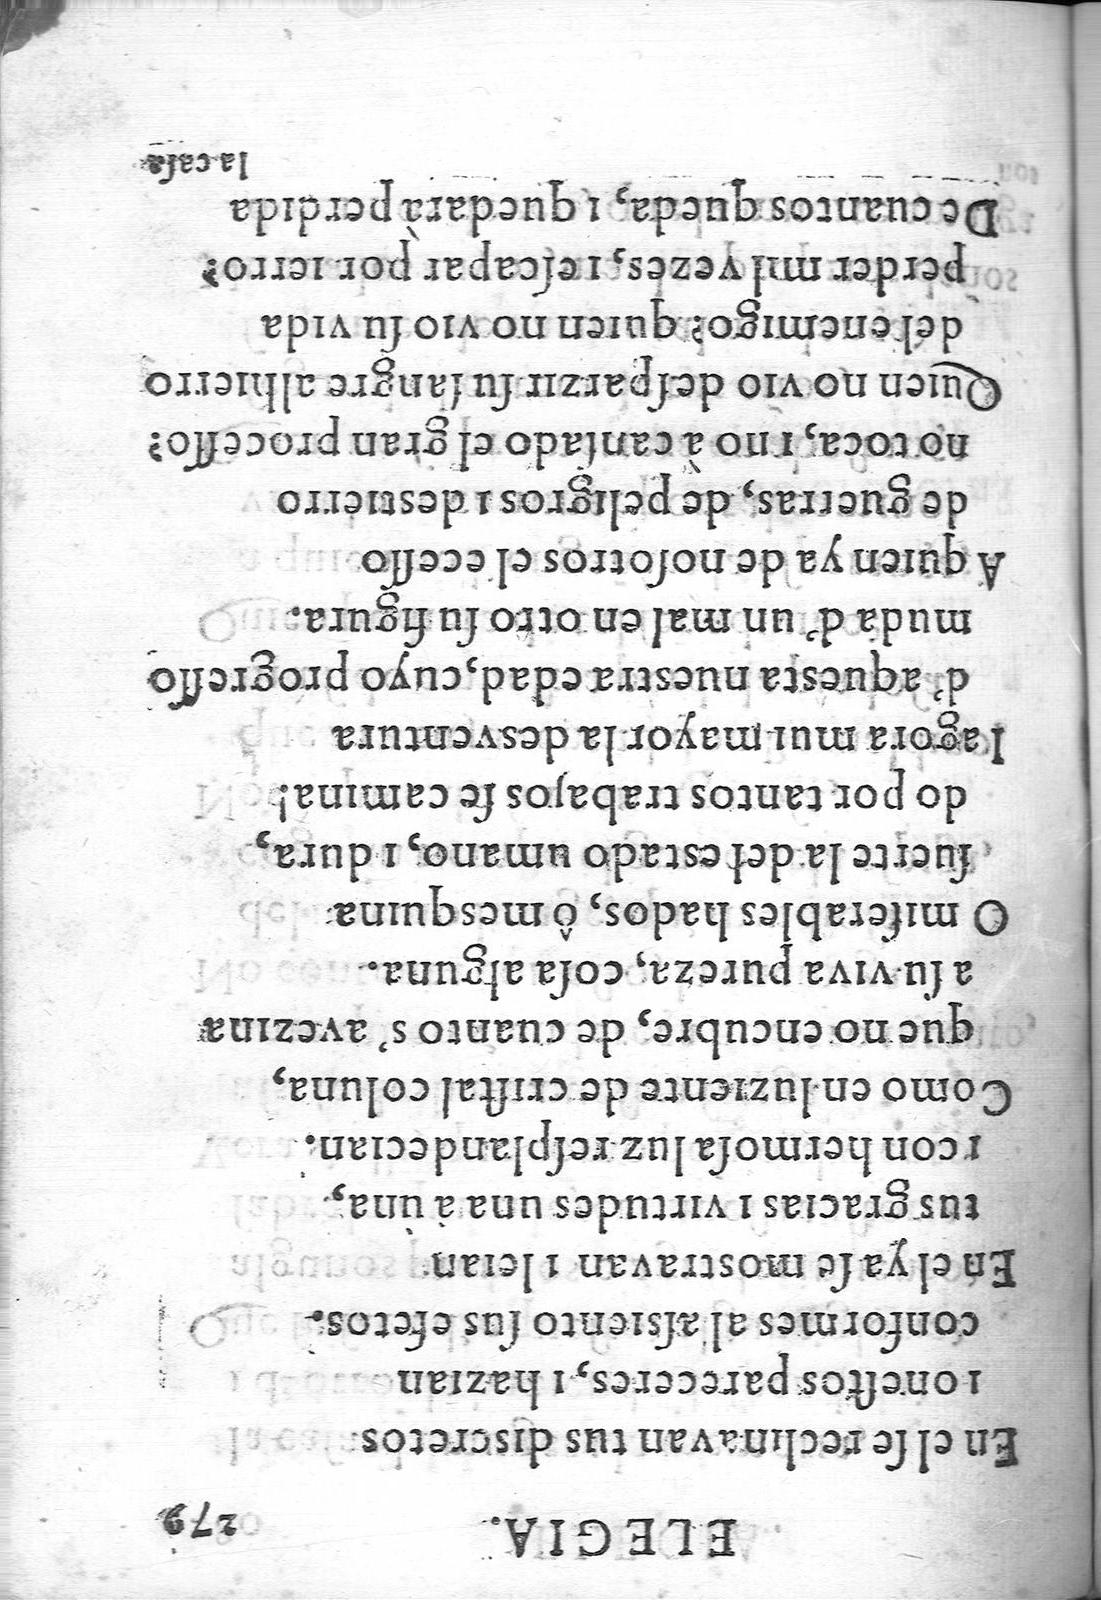 ELEGIA. 279
En el ſe reclinavan tus discretos
i oneſtos pareceres, i hazian
conformes al aſsiento ſus efetos.
En el ya ſe mostravan i leian
tus gracias i virtudes una à una,
i con hermoſa luz reſplandecian.
Como en luziente de criſtal coluna,
que no encubre, de cuanto s' avezina
a ſu viva pureza, coſa alguna.
O miſerables hados, ô mesquina
ſuerte la del estado umano, i dura,
do por tantos trabajos ſe camina!
I agora mui mayor la desventura
d' aquesta nuestra edad, cuyo progreſſo
muda d' un mal en otro ſu figura.
A quien ya de noſotros el eceſſo
de guerras, de peligros i destierro
no toca, i no à canſado el gran proceſſo?
Quien no vio deſparzir ſu ſangre al hierro
del enemigo? quien no vio ſu vida
perder mil vezes, i eſcapar por ierro?
De cuantos queda, i quedarà perdida
la caſa